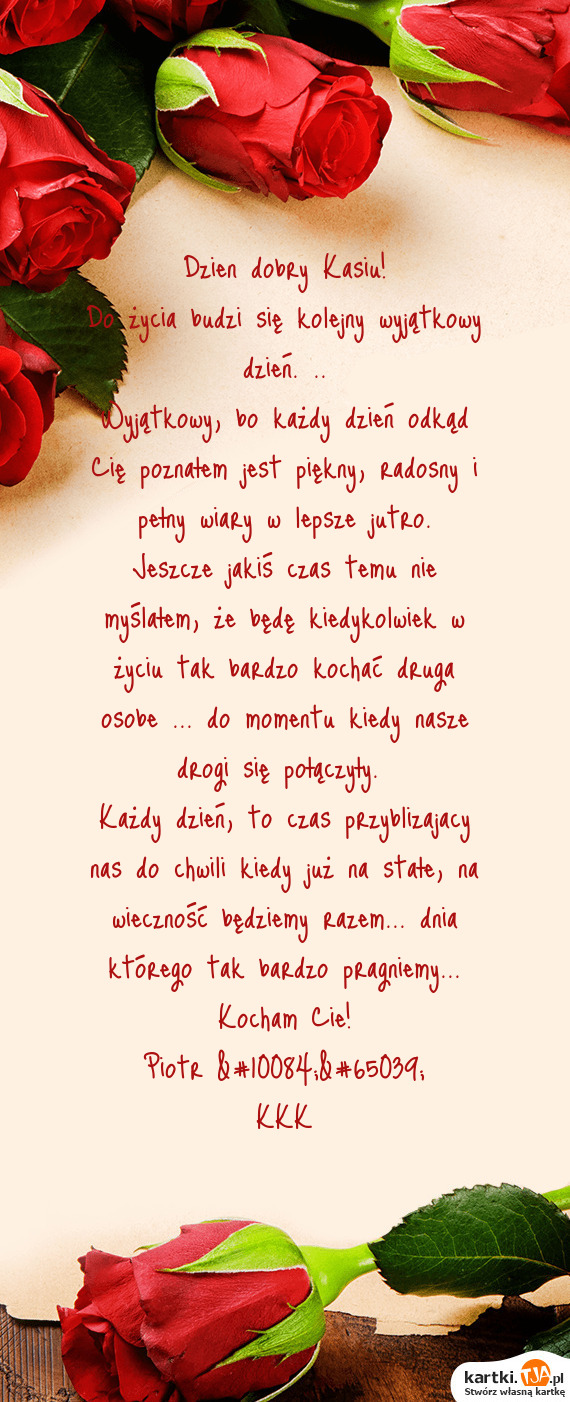 Dzien dobry Kasiu!
Do życia budzi się kolejny wyjątkowy
dzień. ..
Wyjątkowy, bo każdy dzień odkąd
Cię poznałem jest piękny, radosny i
pełny wiary w lepsze jutro.
Jeszcze jakiś czas temu nie
myślałem, że będę kiedykolwiek w
życiu tak bardzo kochać druga
osobe ... do momentu kiedy nasze
drogi się połączyły.
Każdy dzień, to czas przyblizajacy
nas do chwili kiedy już na stałe, na
wieczność będziemy razem... dnia
którego tak bardzo pragniemy...
Kocham Cie!
Piotr &#10084;&#65039;
KKK
kartki.TJA.pl
Stwórz własną kartkę